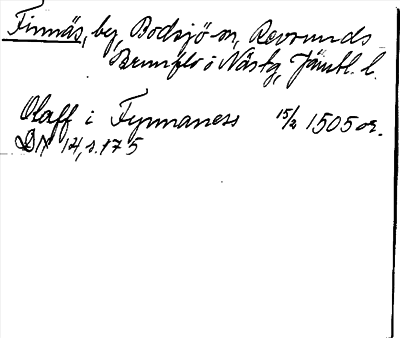 Finnäs, by, Bodsjö sn, Revsunds
Brunflo i Näsbg, Jämtl. l.
Olaff i Fynnaness 15/2 1505 or.
DN 14, s. 175